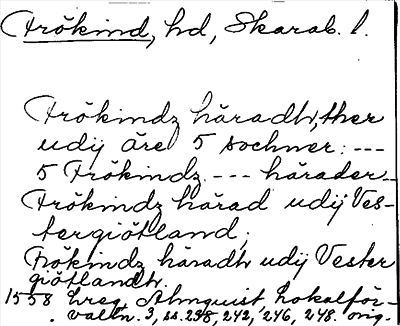 Frökind, hd, Skarab. l.
Frökindz häradtr, ther
udij äre 5 sochner: ---
5 Frökindz --- härader_
Frökindz härad udij Ves-
tergiötland;
Frökindz häradtr udij Vester
giötlandtr.
1558 Ereg, Almquist, Lokalför-
valtn. 3, ss. 238, 242, 246, 248. orig.